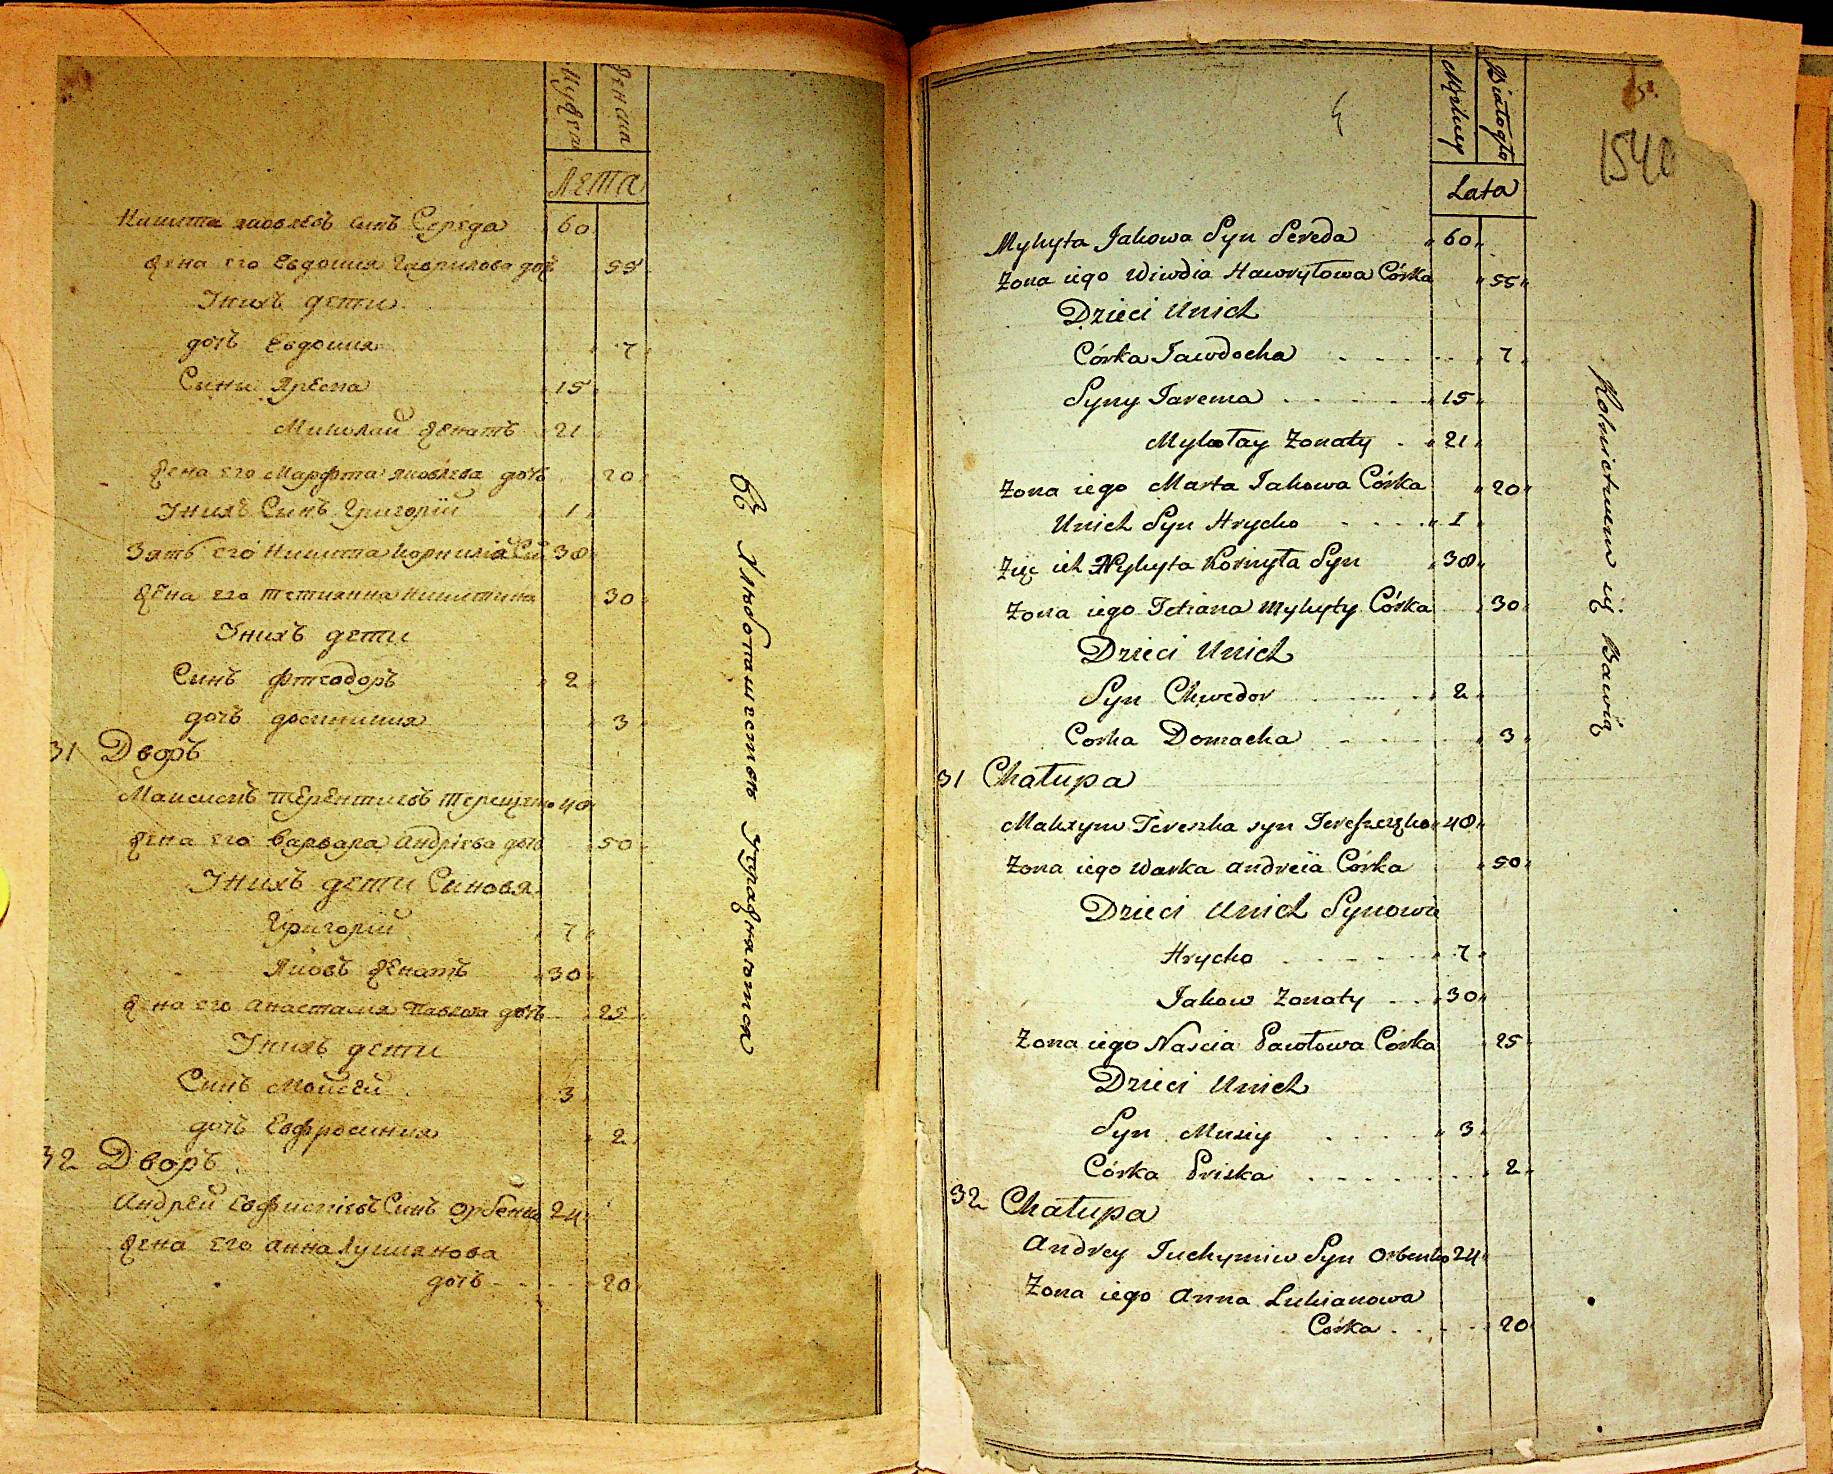 Мужеска
Женска
ЛЕТА
Никита яковлевъ синъ Середа 60
жена его Евдокия Гаврилова дочь 55
Унихъ дети
дочъ Евдокия 7
Сыны Ярема 15
Миколай женатъ 21
жена его Марфта яковлева дочъ 20
Унихъ Сынъ Григорій 1
Зять его Никита Корнилія Син 38
жена его тетиянна никитина 30
Унихъ дети
Синъ фтеодоръ 2
дочъ домникия 3
31 Дворъ
Максимъ терентиевъ терещенко 48
жена его варвара Андріева дочъ 50
Унихъ дети Синовя
Григорій 7
Яковъ женатъ 30
жена его анастасия Павлова дочъ 25
Унихъ дети
Синъ Мойсей 3
дочъ Евфросиния 2
32 Дворъ
Андрей Евфиміевъ Синъ орбенко 24
жена его анна Лукиянова
дочъ 20
въ Хлѣбопашествѣ упражняются
Męskiey
Białogło
Lata
1540
Mykyta Jakowa Syn Sereda 60
Zona iego Wiwdia Hawryłowa Córka 55
Dzieci Unich
Córka Jawdocha 7
Syny Jarema 15
Mykołay Zonaty 21
Zona iego Marta Jakowa Córka 20
Unich Syn Hrycko 1
Zięc ich Mykyta Kornyła Syn 38
Zona iego Tetiana Mykyty Córka 30
Dzieci Unich
Syn Chwedor 2
Corka Domacha 3
31 Chałupa
Maksym Tereszka syn Tereszczęko 48
Zona iego Warka Andreia Córka 50
Dzieci Unich Synowie
Hrycko 7
Jakow Zonaty 30
Zona iego Nascia Pawłowa Córka 25
Dzieci Unich
Syn Musiy 3
Córka Priska 2
32 Chałupa
Andrey Juchymiw Syn Orbenko 24
Zona iego Anna Lukianowa
Córka 20
Rolnictwem się Bawią